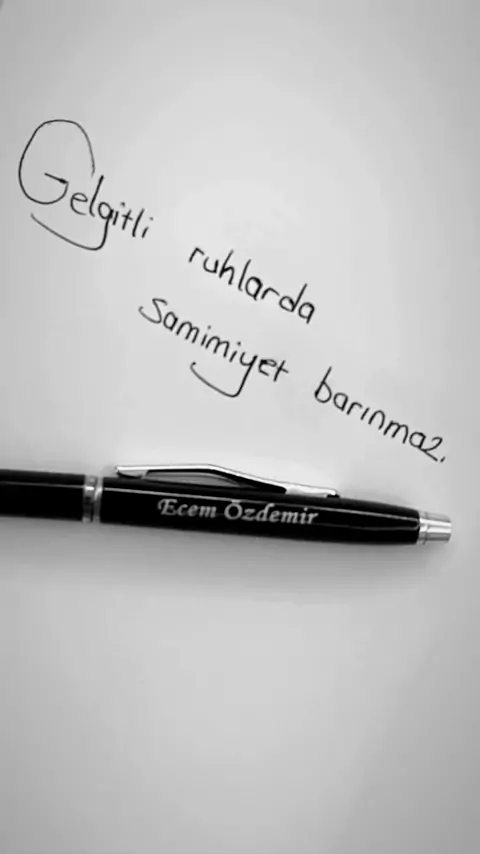 Gelgitli ruhlarda
samimiyet barınmaz.
Ecem Özdemir